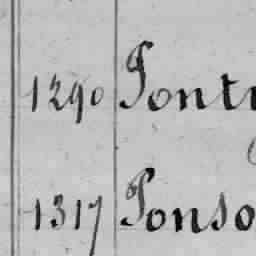 1290 Pont
1317 Ponso